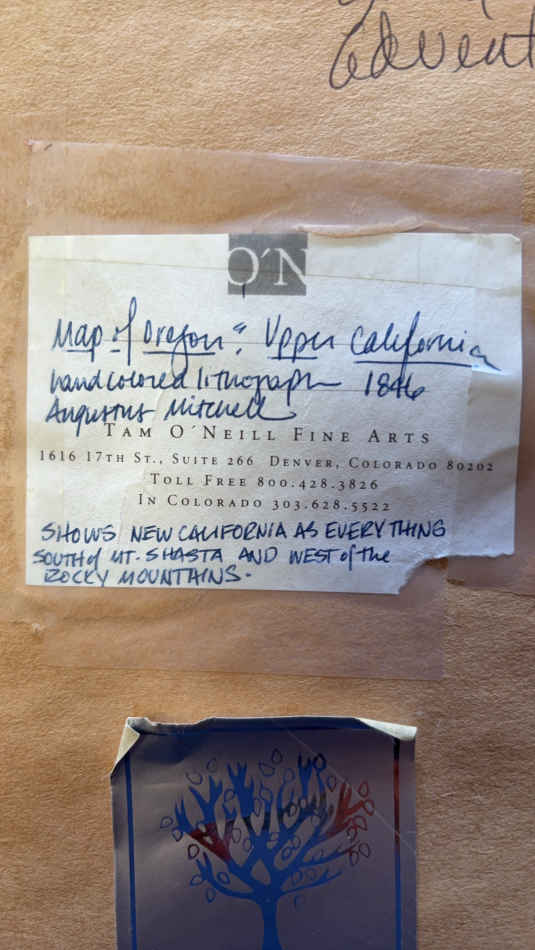 Advent
O'N
Map of Oregon & Upper California
handcolored lithograph 1846
Augustus Mitchell
TAM O'NEILL FINE ARTS
1616 17TH ST., SUITE 266 DENVER, COLORADO 80202
TOLL FREE 800.428.3826
IN COLORADO 303.628.5522
SHOWS NEW CALIFORNIA AS EVERYTHING
SOUTH of MT. SHASTA AND WEST of the
ROCKY MOUNTAINS.